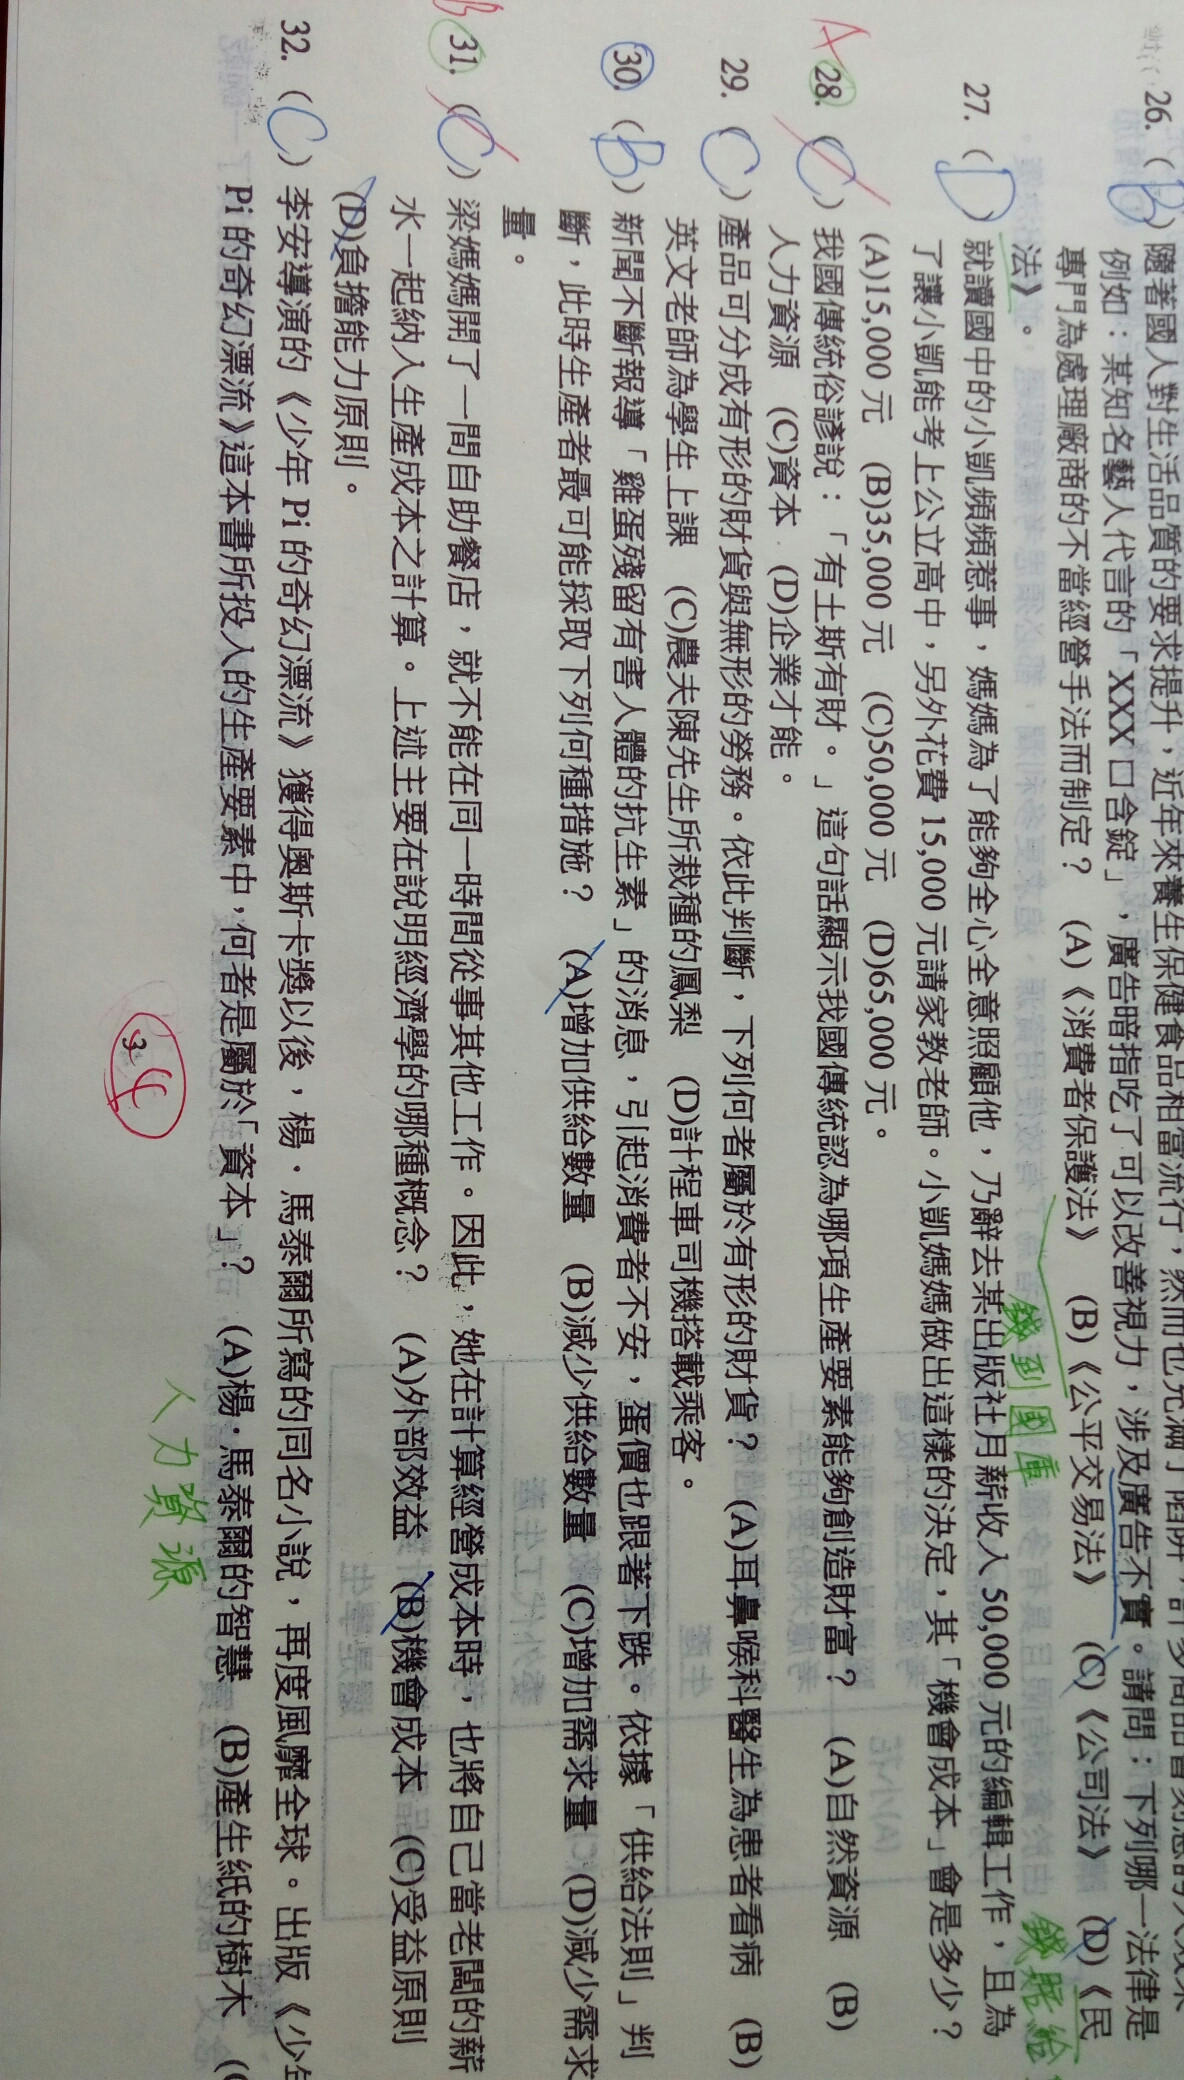 26. (B) 隨著國人對生活品質的要求提升，近年來養生保健食品相當流行，然而也充滿了陷阱，許多商品會刻意誇大效果
例如：某知名藝人代言的「XXX口含錠」，廣告暗指吃了可以改善視力，涉及廣告不實。請問：下列哪一法律是
專門為處理廠商的不當經營手法而制定？ (A)《消費者保護法》 (B)《公平交易法》 (C)《公司法》 (D)《民
法》。
錢到國庫
錢賠給
27. (D) 就讀國中的小凱頻頻惹事，媽媽為了能夠全心全意照顧他，乃辭去某出版社月薪收入50,000元的編輯工作，且為
了讓小凱能考上公立高中，另外花費15,000元請家教老師。小凱媽媽做出這樣的決定，其「機會成本」會是多少？
(A)15,000元 (B)35,000元 (C)50,000元 (D)65,000元。
A 28. (C) 我國傳統俗諺說：「有土斯有財。」這句話顯示我國傳統認為哪項生產要素能夠創造財富？ (A)自然資源 (B)
人力資源 (C)資本 (D)企業才能。
29. (C) 產品可分成有形的財貨與無形的勞務。依此判斷，下列何者屬於有形的財貨？ (A)耳鼻喉科醫生為患者看病 (B)
英文老師為學生上課 (C)農夫陳先生所栽種的鳳梨 (D)計程車司機搭載乘客。
30. (B) 新聞不斷報導「雞蛋殘留有害人體的抗生素」的消息，引起消費者不安，蛋價也跟著下跌。依據「供給法則」判
斷，此時生產者最可能採取下列何種措施？ (A)增加供給數量 (B)減少供給數量 (C)增加需求量 (D)減少需求
量。
B 31. (C) 梁媽媽開了一間自助餐店，就不能在同一時間從事其他工作。因此，她在計算經營成本時，也將自己當老闆的薪
水一起納入生產成本之計算。上述主要在說明經濟學的哪種概念？ (A)外部效益 (B)機會成本 (C)受益原則
(D)負擔能力原則。
32. (C) 李安導演的《少年Pi的奇幻漂流》獲得奧斯卡獎以後，楊．馬泰爾所寫的同名小說，再度風靡全球。出版《少年
Pi的奇幻漂流》這本書所投入的生產要素中，何者是屬於「資本」？ (A)楊．馬泰爾的智慧 (B)產生紙的樹木 (C
人力資源